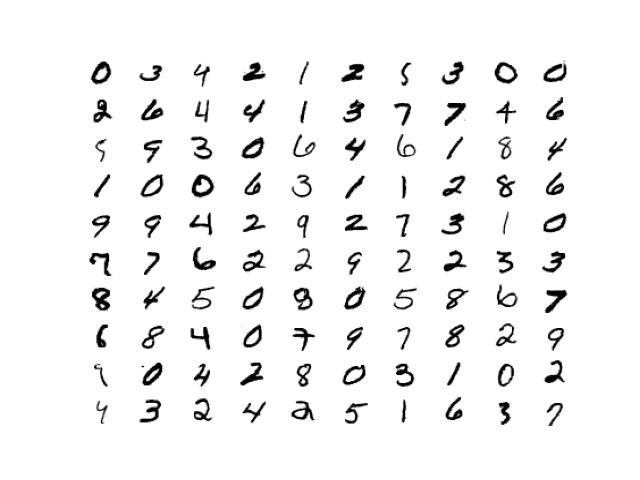 0 3 4 2 1 2 5 3 0 0
2 6 4 4 1 3 7 7 4 6
5 9 3 0 6 4 6 1 8 4
1 0 0 6 3 1 1 2 8 6
9 9 4 2 9 2 7 3 1 0
7 7 6 2 2 9 2 2 3 3
8 4 5 0 8 0 5 8 6 7
6 8 4 0 7 9 7 8 2 9
9 0 4 2 8 0 3 1 0 2
4 3 2 4 2 5 1 6 3 7